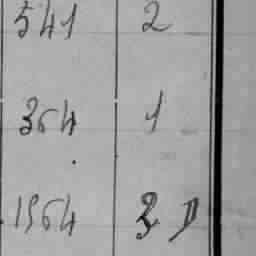 541 2
364 1
1964 3